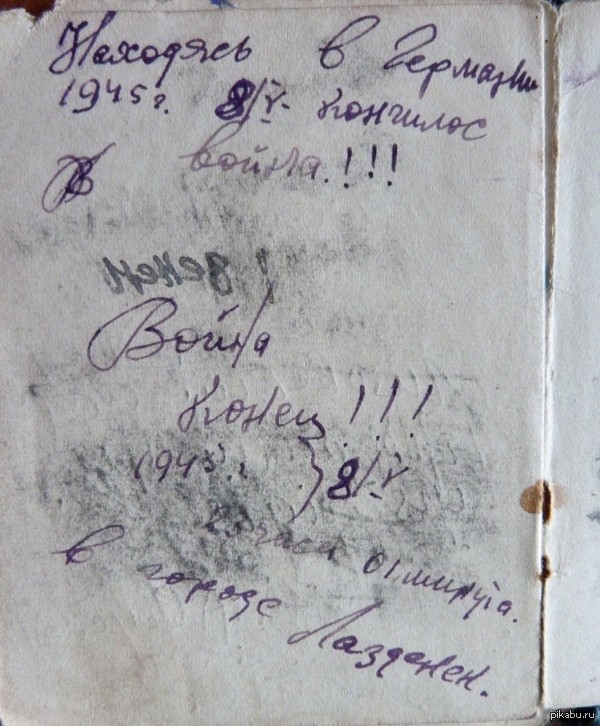 Находясь в Германии
1945 г. 8/V. кончилос
война!!!
Война
конец!!!
1945 г. 8/V
23 часа 01 минута.
в городе Лазденен.
pikabu.ru